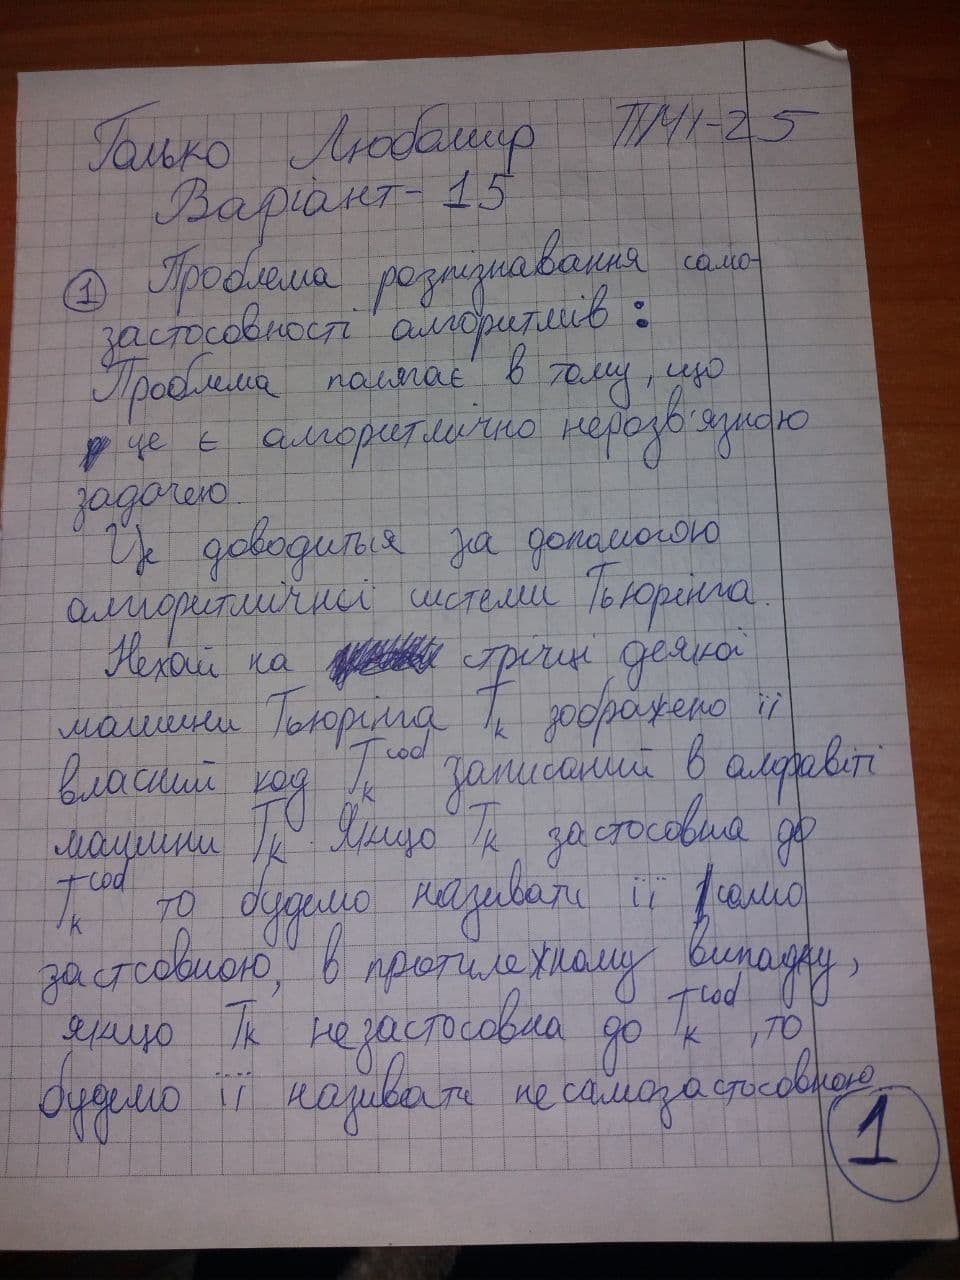 Галько Любомир ПМІ-25
Варіант-15
1 Проблема розпізнавання само-
застосовності алгоритмів:
Проблема полягає в тому, що
це є алгоритмічно нерозв'язною
задачею.
Це доводиться за допомогою
алгоритмічної системи Тьюрінга.
Нехай на стрічці деякої
машини Тьюрінга Tk зображено її
власний код Tk^cod записаний в алфавіті
машини Tk. Якщо Tk застосовна до
Tk^cod то будемо називати її само
застсовною, в протилежному випадку,
якщо Tk незастосовна до Tk^cod, то
будемо її називати несамозастосовною
1